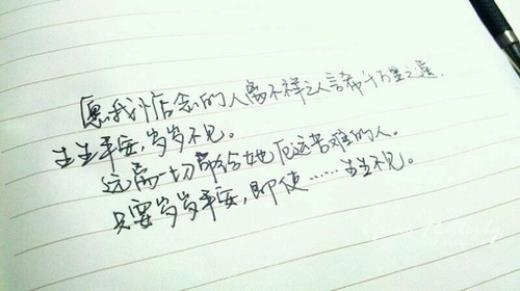 愿我惦念的人离不祥之人言希十万里之遥.
生生平安,岁岁不见。
远离一切带给她厄运苦难的人。
只要岁岁平安,即使……生生不见。